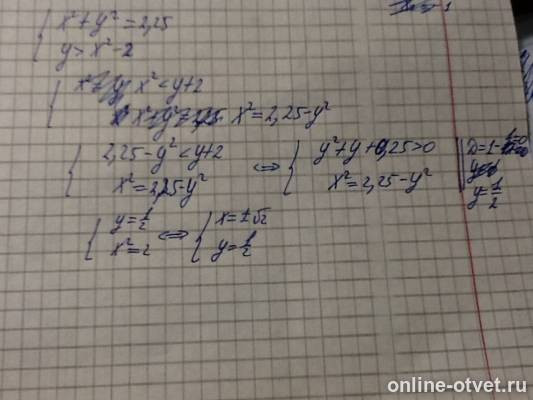 x² + y² = 2,25
y > x² - 2
x² < y + 2
x² = 2,25 - y²
2,25 - y² < y + 2 ⇔ y² + y + 0,25 > 0
x² = 2,25 - y² x² = 2,25 - y²
D = 1 -
y = 1/2
y = 1/2 ⇔ x = ±√2
x² = 2 y = 1/2
online-otvet.ru